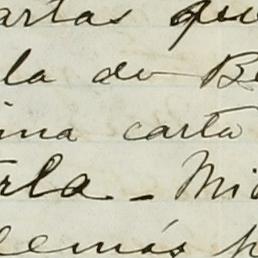 artas que
la de Be
ina carta
rla - Mi
emás